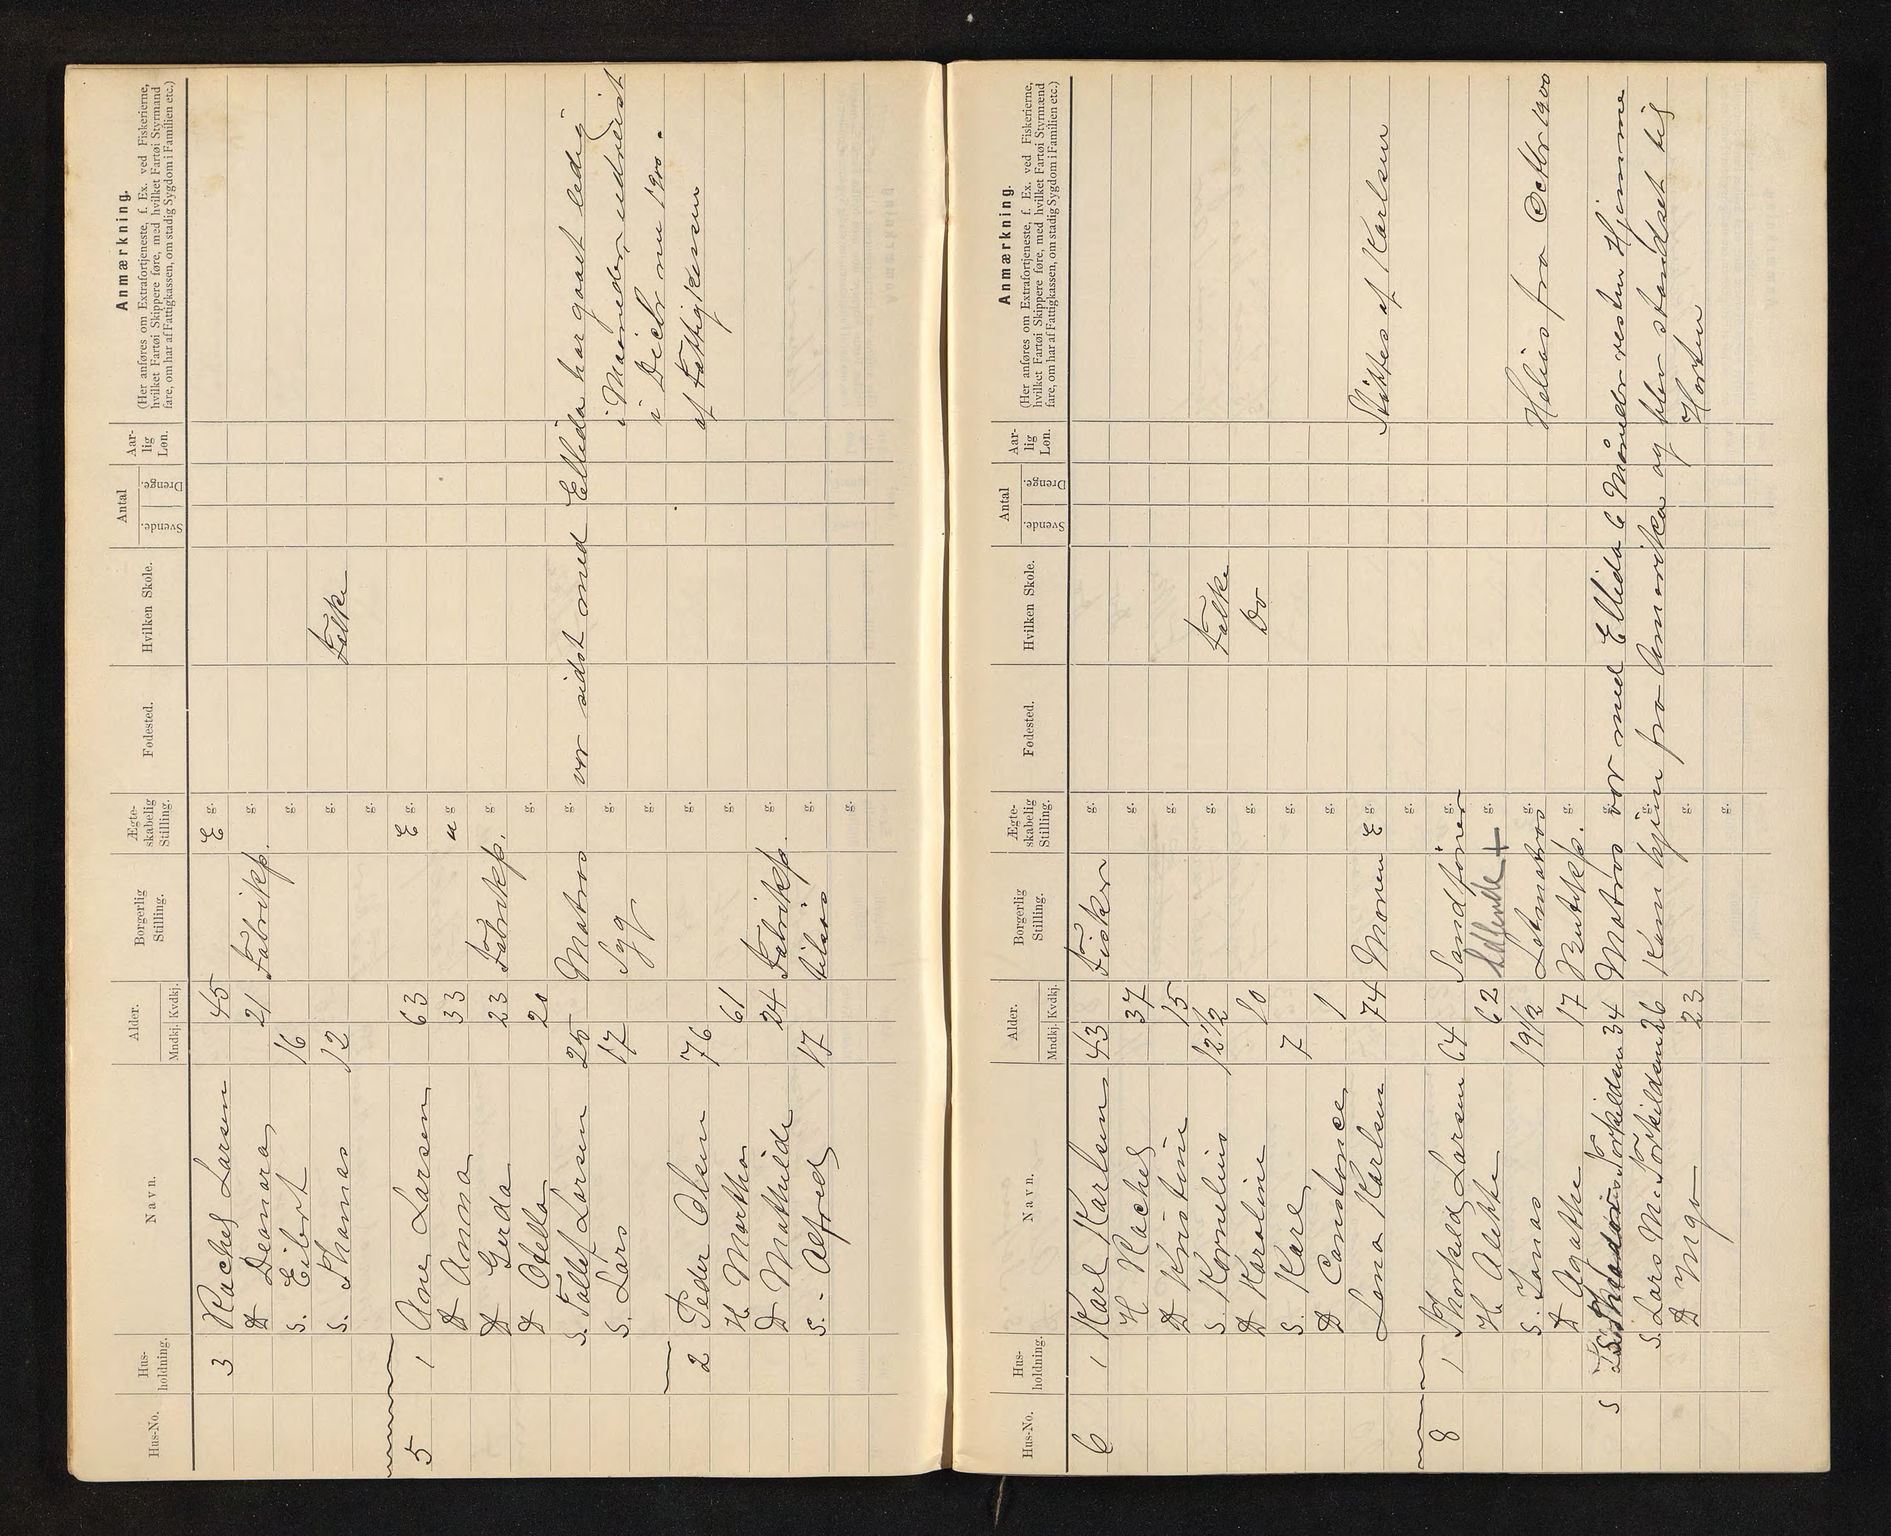 Hus-No. Hus-holdning. Navn. Alder. Mndkj. Kvdkj. Borgerlig Stilling. Ægte-skabelig Stilling. Fødested. Hvilken Skole. Antal Svende. Drenge. Aar-lig Løn. Anmærkning.
(Her anføres om Extrafortjeneste, f. Ex. ved Fiskerierne,
hvilket Fartøi Skippere føre, med hvilket Fartøi Styrmand
fare, om har af Fattigkassen, om stadig Sygdom i Familien etc.)
3 Rachel Larsen 45 E g.
D Deonora 21 Fabrikp. g.
S. Eilert 16 g.
S. Thomas 12 g. Folke
g.
5 1 Ane Larsen 63 E g.
D Anna 33 u g.
D Gerda 23 Fabrikp. g.
D Otella 20 g.
S. Tollef Larsen 25 Matros g. var sidst med Ellida har gaaet ledig
S. Lars 17 Syg g. i Maaneder, udreist
g. i Decbr nu 1900.
2 Peder Olsen 76 g. af Fattigkassen
H Martha 61 g.
D Mathilde 24 Fabrikp. g.
S. - Alfred 17 tilsøs g.
g.
Hus-No. Hus-holdning. Navn. Alder. Mndkj. Kvdkj. Borgerlig Stilling. Ægte-skabelig Stilling. Fødested. Hvilken Skole. Antal Svende. Drenge. Aar-lig Løn. Anmærkning.
(Her anføres om Extrafortjeneste, f. Ex. ved Fiskerierne,
hvilket Fartøi Skippere føre, med hvilket Fartøi Styrmænd
fare, om har af Fattigkassen, om stadig Sygdom i Familien etc.)
6 1 Karl Karlsen 43 Fisker g.
H Rachel 37 g.
D Kristine 15 g.
S. Kornelius 12 1/2 g. Folke
D Karoline 10 g. Do
S. Karl 7 g.
D Constance 1 g.
Lena Karlsen 74 Moren E g. Støttes af Karlsen
g.
8 1 Thorkild Larsen 64 Sandkjører g.
H Alette 62 g.
S. Jonas 19 1/2 Letmatros g. Helios fra Octbr 1900
D Agathe 17 Butikp. g.
S S. Theodor Torkildsen 34 Matros g. var med Ellida 6 Måneder resten Hjemme
S. Lars M. Torkildsen 26 Kom hjem g. fra Amerika og blev standset til
D Inga 23 g. Horten
g.